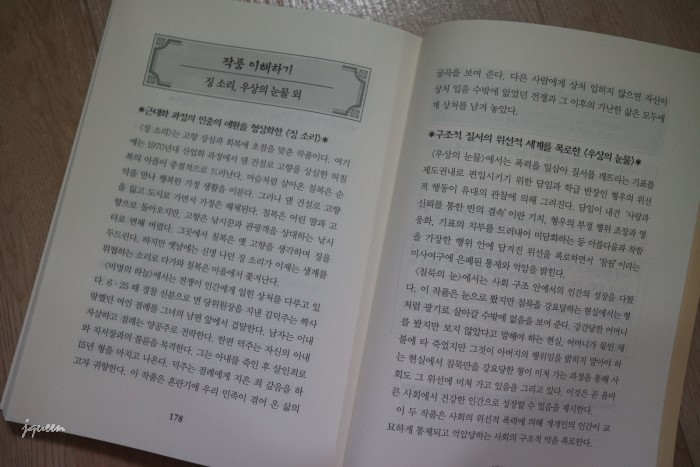 작품 이해하기
징 소리, 우상의 눈물 외
*근대화 과정의 민중의 애환을 형상화한 〈징 소리〉*
〈징 소리〉는 고향 상실과 회복에 초점을 맞춘 작품이다. 여기
에는 1970년대 산업화 과정에서 댐 건설로 고향을 상실한 허칠
복의 아픔이 중점적으로 드러난다. 머슴처럼 살아온 칠복은 순
덕을 만나 행복한 가정 생활을 이룬다. 그러나 댐 건설로 고향
을 잃고 도시로 가면서 가정은 해체된다. 칠복은 어린 딸과 고
향으로 돌아오지만, 고향은 낚시꾼과 관광객을 상대하는 낚시
터로 변해 버렸다. 그곳에서 칠복은 옛 고향을 생각하며 징을
두드린다. 하지만 옛날에는 신명 나던 징 소리가 이제는 생계를
위협하는 소리로 다가와 칠복은 마을에서 쫓겨난다.
〈미명의 하늘〉에서는 전쟁이 인간에게 입힌 상처를 다루고 있
다. 6·25 때 경찰 신분으로 면 당위원장을 지낸 김덕주는 짝사
랑했던 여인 점례를 그녀의 남편 앞에서 겁탈한다. 남자는 아내
를 자상하고 점례는 양공주로 전락한다. 한편 덕주는 자신의 아내
와 지서장과의 불륜을 목격한다. 그는 아내를 죽인 후 살인죄로
15년 형을 마치고 나온다. 덕주는 점례에게 지은 죄 갚음을 하
고자 귀향한다. 이 작품은 혼란기에 우리 민족이 겪어 온 삶의
178
굴곡을 보여 준다. 다른 사람에게 상처 입히지 않으면 자신이
상처 입을 수밖에 없었던 전쟁과 그 이후의 가난한 삶은 모두에
게 상처를 남겨 놓았다.
*구조적 질서의 위선적 세계를 폭로한 〈우상의 눈물〉*
〈우상의 눈물〉에서는 폭력을 일삼아 질서를 깨뜨리는 기표를
제도권내로 편입시키기 위한 담임과 학급 반장인 형우의 위선
적 행동이 유대의 관찰에 의해 그려진다. 담임이 내건 '사랑과
신뢰를 통한 반의 결속'이란 기치, 형우의 부정 행위 조장과 영
웅화, 기표의 치부를 드러내어 미담화하는 등 아름다움과 착함
을 가장한 행위 안에 담겨진 위선을 폭로하면서 '참됨'이라는
미사여구에 은폐된 통제와 억압을 밝힌다.
〈침묵의 눈〉에서는 사회 구조 안에서의 인간의 성장을 다뤘
다. 이 작품은 눈으로 봤지만 침묵을 강요당하는 현실에서는 형
처럼 광기로 살아갈 수밖에 없음을 보여 준다. 강간당한 어머니
를 봤지만 보지 않았다고 말해야 하는 현실, 어머니가 묶인 채
불에 타 죽었지만 그것이 아버지의 행위임을 밝히지 말아야 하
는 현실에서 침묵만을 강요당한 형이 미쳐 가는 과정을 통해 사
회도 그 위선에 미쳐 가고 있음을 그리고 있다. 이것은 곧 올바
른 사회에서 건강한 인간으로 성장할 수 있음을 제시한다.
이 두 작품은 사회의 위선적 폭력에 의해 개개인의 인간이 교
묘하게 통제되고 억압당하는 사회의 구조적 악을 폭로한다.
jqueen